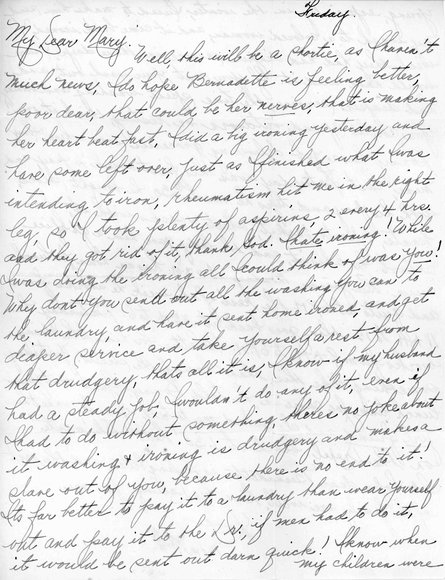 Friday.
My Dear Mary:
Well, this will be a shortie, as I haven't
much news, I do hope Bernadette is feeling better,
poor dear, that could be her nerves, that is making
her heart beat fast, I did a big ironing yesterday and
have some left over, just as I finished what I was
intending to iron, rheumatism hit me in the right
leg, so I took plenty of aspirins 2 every 4 hrs.
and they got rid of it, thank God. I hate ironing! While
I was doing the ironing all I could think of was you!
Why dont you send out all the washing you can to
the laundry, and have it sent home ironed, and get
diaper service and take yourself a rest from
that drudgery, thats all it is, I know if my husband
had a steady job, I wouldn't do any of it, even if
I had to do without something, theres no joke about
it washing & ironing is drudgery and makes a
slave out of you, because there is no end to it!
Its far better to pay it to a laundry than wear yourself
out and pay it to the Dr., if men had to do it,
it would be sent out darn quick! I know when
my children were